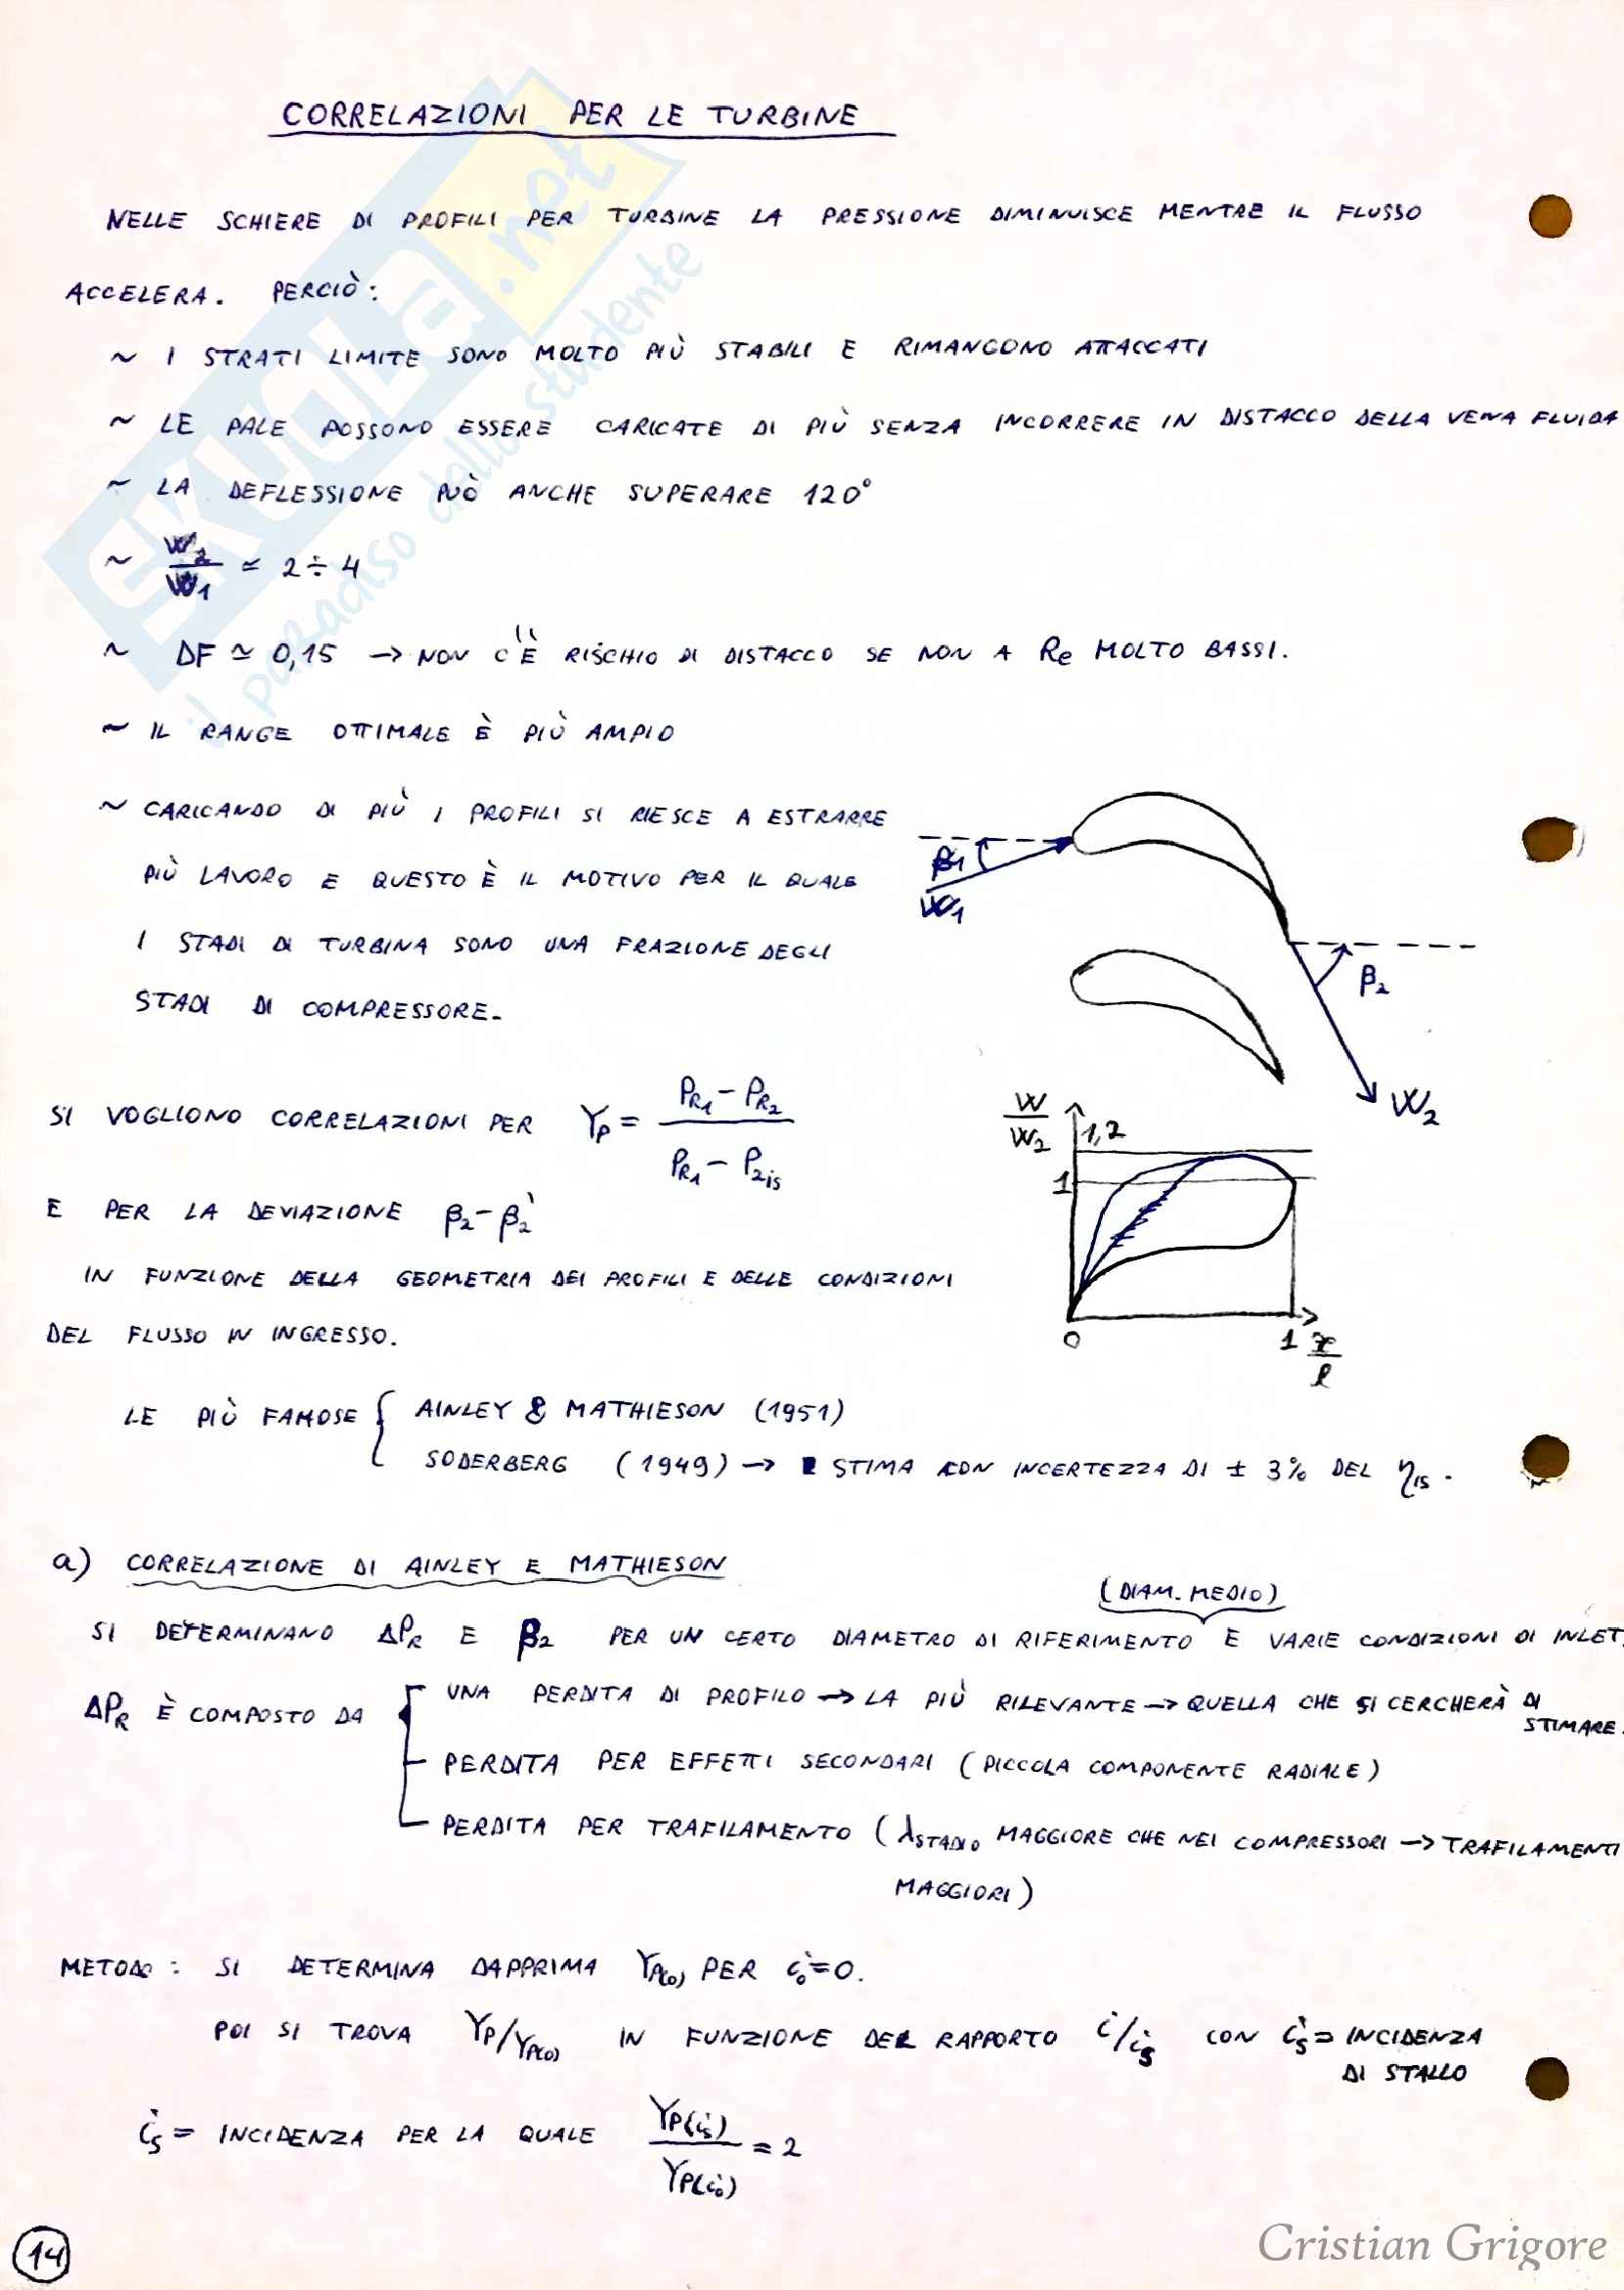 CORRELAZIONI PER LE TURBINE
NELLE SCHIERE DI PROFILI PER TURBINE LA PRESSIONE DIMINUISCE MENTRE IL FLUSSO
ACCELERA. PERCIÒ:
~ I STRATI LIMITE SONO MOLTO PIÙ STABILI E RIMANGONO ATTACCATI
~ LE PALE POSSONO ESSERE CARICATE DI PIÙ SENZA INCORRERE IN DISTACCO DELLA VENA FLUIDA
~ LA DEFLESSIONE PUÒ ANCHE SUPERARE 120°
~ W2/W1 ≃ 2÷4
~ DF ≃ 0,15 → NON C'È RISCHIO DI DISTACCO SE NON A Re MOLTO BASSI.
~ IL RANGE OTTIMALE È PIÙ AMPIO
~ CARICANDO DI PIÙ I PROFILI SI RIESCE A ESTRARRE
PIÙ LAVORO E QUESTO È IL MOTIVO PER IL QUALE
I STADI DI TURBINA SONO UNA FRAZIONE DEGLI
STADI DI COMPRESSORE.
β1
W1
β2
W2
SI VOGLIONO CORRELAZIONI PER Yp = (PR1 - PR2)/(PR1 - P2is)
E PER LA DEVIAZIONE β2 - β2'
IN FUNZIONE DELLA GEOMETRIA DEI PROFILI E DELLE CONDIZIONI
DEL FLUSSO IN INGRESSO.
W/W2
1,2
1
0
1 x/l
LE PIÙ FAMOSE { AINLEY & MATHIESON (1951)
SODERBERG (1949) → STIMA CON INCERTEZZA DI ± 3% DEL ηis.
a) CORRELAZIONE DI AINLEY E MATHIESON
(DIAM. MEDIO)
SI DETERMINANO ΔPR E β2 PER UN CERTO DIAMETRO DI RIFERIMENTO E VARIE CONDIZIONI DI INLET.
ΔPR È COMPOSTO DA
UNA PERDITA DI PROFILO → LA PIÙ RILEVANTE → QUELLA CHE SI CERCHERÀ DI
STIMARE.
PERDITA PER EFFETTI SECONDARI (PICCOLA COMPONENTE RADIALE)
PERDITA PER TRAFILAMENTO (λSTADIO MAGGIORE CHE NEI COMPRESSORI → TRAFILAMENTI
MAGGIORI)
METODO: SI DETERMINA DAPPRIMA Yp(0) PER i0=0.
POI SI TROVA Yp/Yp(0) IN FUNZIONE DEL RAPPORTO i/is CON is = INCIDENZA
DI STALLO
is = INCIDENZA PER LA QUALE Yp(is)/Yp(i0) = 2
14
Cristian Grigore
SKUOLA.net
il paradiso dello studente